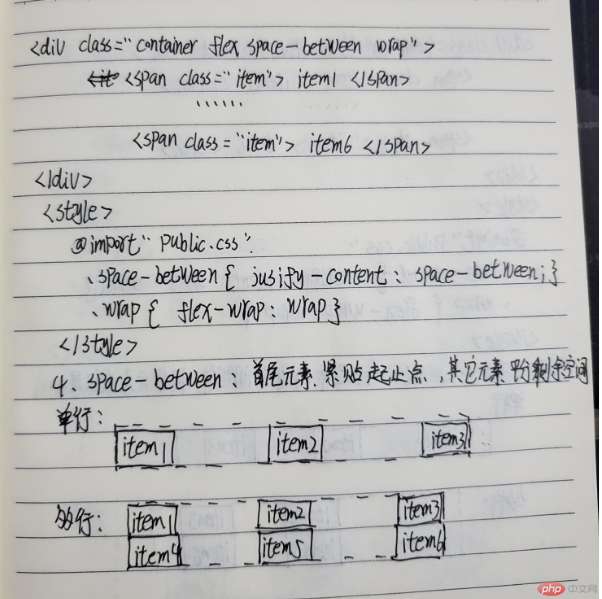 <div class="container flex space-between wrap">
<span class="item"> item1 </span>
......
<span class="item"> item6 </span>
</div>
<style>
@import "public.css".
.space-between { jusify-content : space-between; }
.wrap { flex-wrap : wrap }
</style>
4、space-between : 首尾元素紧贴起止点,其它元素平分剩余空间
单行:
item1 item2 item3
多行:
item1 item2 item3
item4 item5 item6
php 中文网